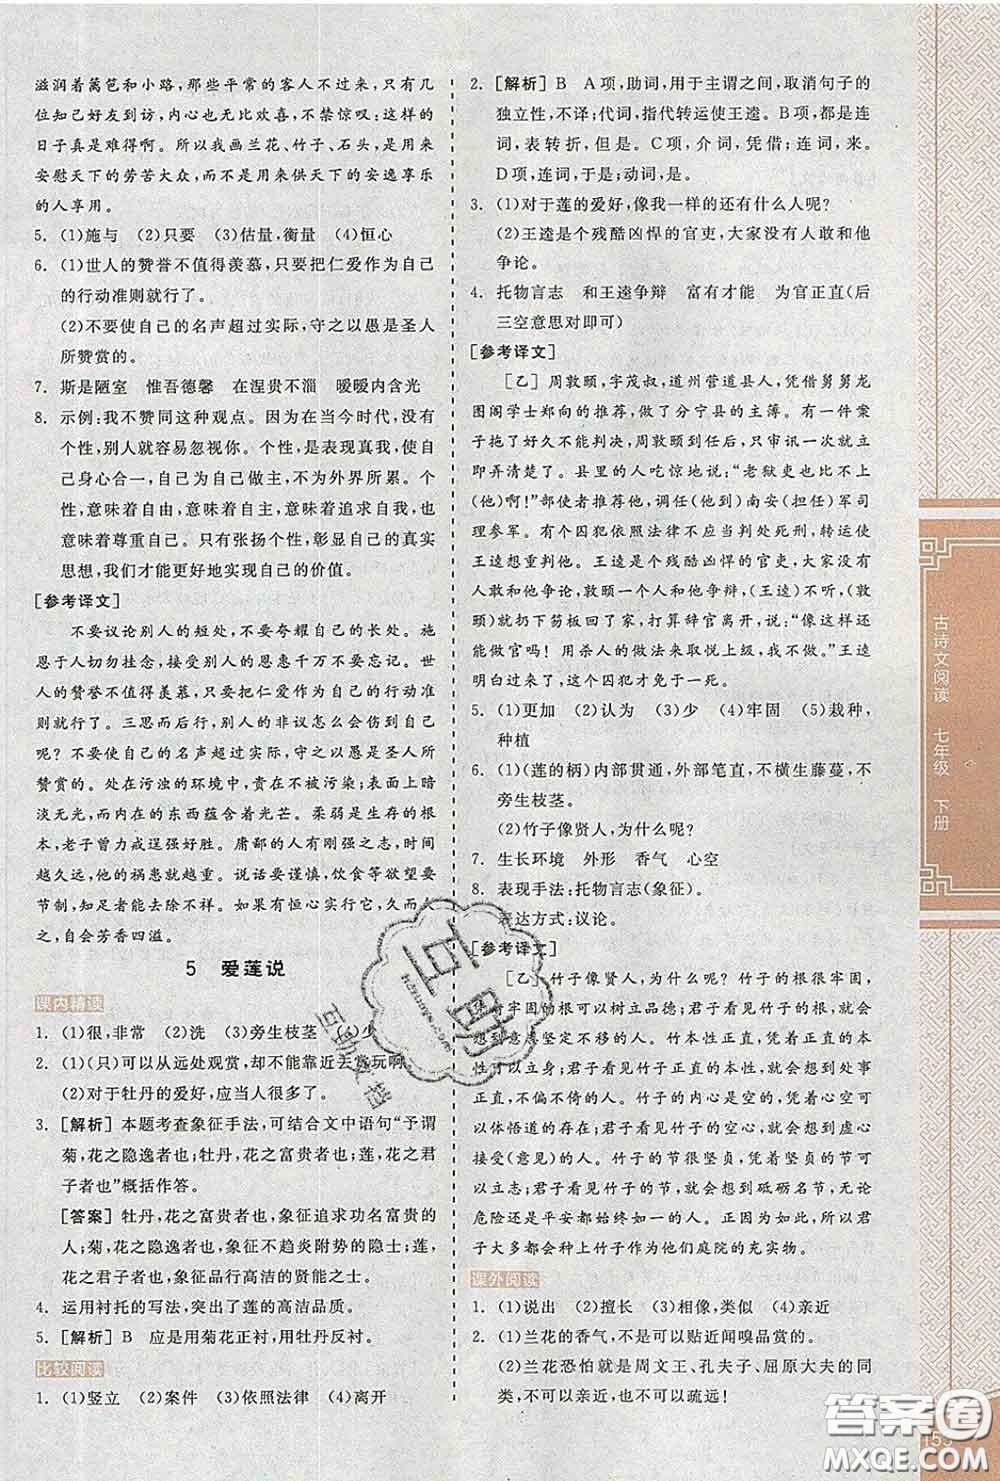 滋润着篱笆和小路,那些平常的客人不过来,只有几
位知己好友到访,内心也无比欢喜,不禁惊叹:这样的
日子真是难得啊。所以我画兰花、竹子、石头,是用来
安慰天下的劳苦大众,而不是用来供天下的安逸享乐
的人享用。
5. (1)施与 (2)只要 (3)估量,衡量 (4)恒心
6. (1)世人的赞誉不值得羡慕,只要把仁爱作为自己
的行动准则就行了。
(2)不要使自己的名声超过实际,守之以愚是圣人
所赞赏的。
7. 斯是陋室 惟吾德馨 在涅贵不淄 暧暧内含光
8. 示例:我不赞同这种观点。因为在当今时代,没有
个性,别人就容易忽视你。个性,是表现真我,使自
己身心合一,自己为自己做主,不为外界所累。个
性,意味着自由,意味着自主,意味着追求自我,也
意味着尊重自己。只有张扬个性,彰显自己的真实
思想,我们才能更好地实现自己的价值。
[参考译文]
不要议论别人的短处,不要夸耀自己的长处。施
恩于人切勿挂念,接受别人的恩惠千万不要忘记。世
人的赞誉不值得羡慕,只要把仁爱作为自己的行动准
则就行了。三思而后行,别人的非议怎么会伤到自己
呢?不要使自己的名声超过实际,守之以愚是圣人所
赞赏的。处在污浊的环境中,贵在不被污染;表面上暗
淡无光,而内在的东西蕴含着光芒。柔弱是生存的根
本,老子曾力戒逞强好胜。庸鄙的人有刚强之志,时间
越久远,他的祸患就越重。说话要谨慎,饮食等欲望要
节制,知足者能去除不祥。如果有恒心实行它,久而久之,
自会芳香四溢。
5 爱莲说
课内精读
1. (1)很,非常 (2)洗 (3)旁生枝茎 (4)少
2. (1)(只)可以从远处观赏,却不能靠近去赏玩啊
(2)对于牡丹的爱好,应当人很多了。
3. [解析] 本题考查象征手法,可结合文中语句“予谓
菊,花之隐逸者也;牡丹,花之富贵者也;莲,花之君
子者也”概括作答。
[答案] 牡丹,花之富贵者也,象征追求功名富贵的
人;菊,花之隐逸者也,象征不趋炎附势的隐士;莲,
花之君子者也,象征品行高洁的贤能之士。
4. 运用衬托的写法,突出了莲的高洁品质。
5. [解析] B 应是用菊花正衬,用牡丹反衬。
比较阅读
1. (1)竖立 (2)案件 (3)依照法律 (4)离开
2. [解析] B A项,助词,用于主谓之间,取消句子的
独立性,不译;代词,指代转运使王逵。B项,都是连
词,表转折,但是。C项,介词,凭借;连词,来。
D项,连词,于是;动词,是。
3. (1)对于莲的爱好,像我一样的还有什么人呢?
(2)王逵是个残酷凶悍的官吏,大家没有人敢和他
争论。
4. 托物言志 和王逵争辩 富有才能 为官正直(后
三空意思对即可)
[参考译文]
[乙] 周敦颐,字茂叔,道州营道县人,凭借舅舅龙
图阁学士郑向的推荐,做了分宁县的主簿。有一件案
子拖了好久不能判决,周敦颐到任后,只审讯一次就立
即弄清楚了。县里的人吃惊地说:“老狱吏也比不上
(他)啊!”部使者推荐他,调(他到)南安(担任)军司
理参军。有个囚犯依照法律不应当判处死刑,转运使
王逵想重判他。王逵是个残酷凶悍的官吏,大家没有
人敢和他争论,敦颐一个人和他争辩,(王逵)不听,(敦
颐)就扔下笏板回了家,打算辞官离去,说:“像这样还
能做官吗!用杀人的做法来取悦上级,我不做。”王逵
明白过来了,这个囚犯才免于一死。
5. (1)更加 (2)认为 (3)少 (4)牢固 (5)栽种,
种植
6. (1)(莲的柄)内部贯通,外部笔直,不横生藤蔓,不
旁生枝茎。
(2)竹子像贤人,为什么呢?
7. 生长环境 外形 香气 心空
8. 表现手法:托物言志(象征)。
表达方式:议论。
[参考译文]
[乙] 竹子像贤人,为什么呢?竹子的根很牢固,
凭着牢固的根可以树立品德;君子看见竹子的根,就会
想到意志坚定不移的人。竹本性正直,凭借正直的本性
可以立身;君子看见竹子正直的本性,就会想到处事正直,
一点不偏不倚的人。竹子的内心是空的,凭着空心可
以体悟道的存在;君子看见竹子的空心,就会想到虚心
接受(意见)的人。竹子的节很坚贞,凭着坚贞的节可
以立志;君子看见竹子的节,就会想到砥砺名节,无论
危险还是平安都始终如一的人。正因为如此,所以君
子大多都会种上竹子作为他们庭院的充实物。
课外阅读
1. (1)说出 (2)擅长 (3)相像,类似 (4)亲近
2. (1)兰花的香气,不是可以走近闻嗅品赏的。
(2)兰花恐怕就是周文王、孔夫子、屈原大夫的同
类,不可以亲近,也不可以疏远!
古诗文阅读 七年级 下册
153
答案圈
MXQE.COM